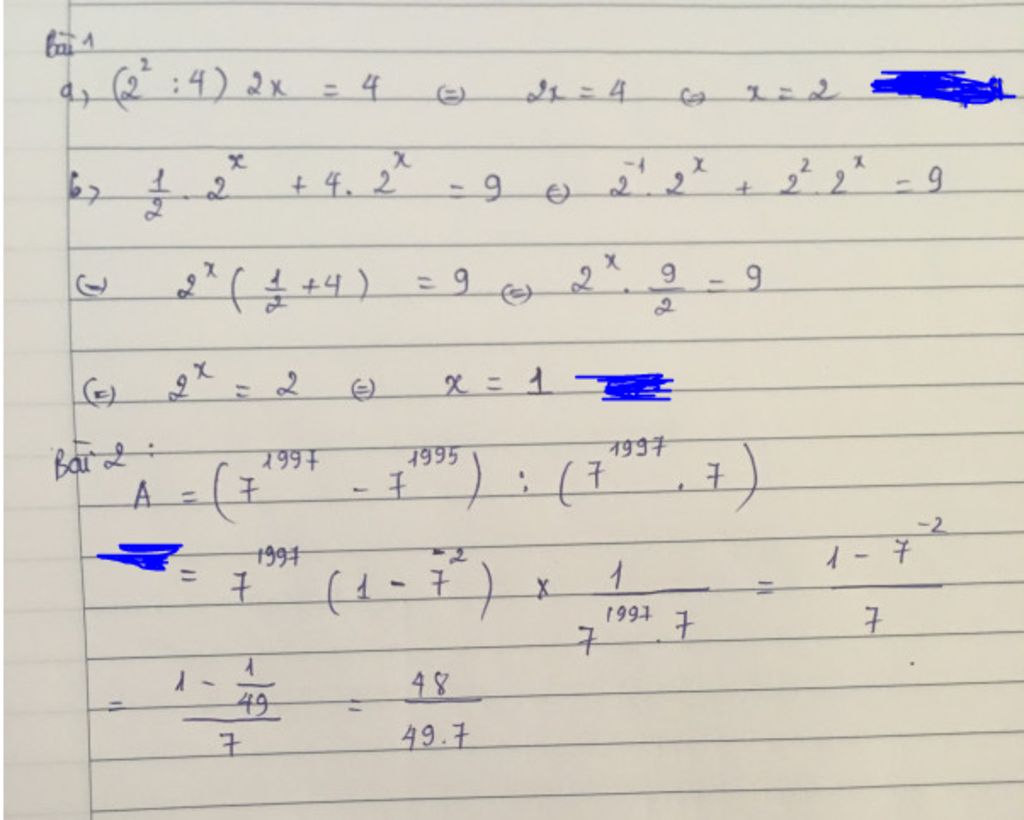 Bài 1
a, (2² : 4) 2x = 4 (=) 2x = 4 (=) x = 2
b, 1/2 . 2^x + 4. 2^x = 9 (=) 2^-1 . 2^x + 2² . 2^x = 9
(=) 2^x (1/2 + 4) = 9 (=) 2^x . 9/2 = 9
(=) 2^x = 2 (=) x = 1
Bài 2 :
A = (7^1997 - 7^1995) : (7^1997 . 7)
= 7^1997 (1 - 7^-2) x 1/(7^1997 . 7) = (1 - 7^-2)/7
= (1 - 1/49)/7 = 48/(49.7)